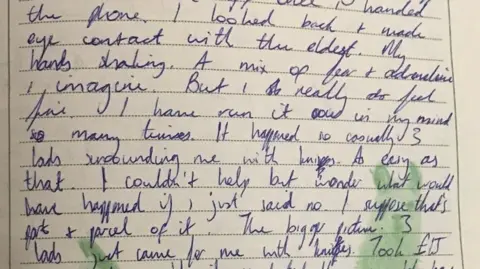 I handed
the phone. I looked back & made
eye contact with the eldest. My
hands shaking. A mix of fear & adrenaline
I imagine. But I do really do feel
fine. I have run it over in my mind
so many times. It happened so casually 3
lads surrounding me with knives. As easy as
that. I couldn't help but wonder what would
have happened if I just said no. I suppose that's
part & parcel of it. The bigger picture. 3
lads just came for me with knives. Took